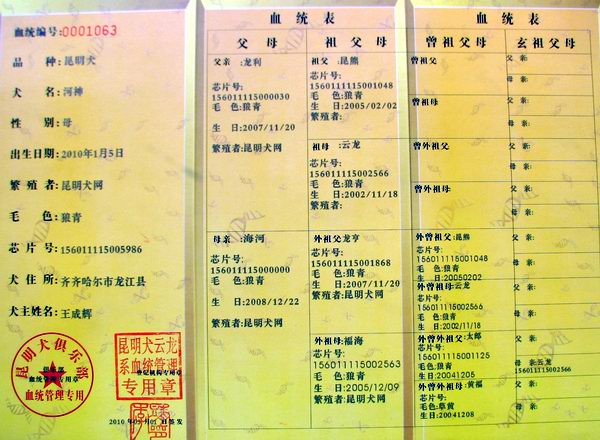 血统编号:0001063
品　种:昆明犬
犬　名:河神
性　别:母
出生日期:2010年1月5日
繁殖者:昆明犬网
毛　色:狼青
芯片号:156011115005986
犬住所:齐齐哈尔市龙江县
犬主姓名:王成辉
昆明犬俱乐部
俱乐部
血统管理专用章
血统管理专用
昆明犬云龙
系血统管理
登记机构专用章
专用章
血统表
父母
祖父母
父亲:龙利
芯片号:
156011115000030
毛　色:狼青
生　日:2007/11/20
繁殖者:昆明犬网
母亲:海河
芯片号:
156011115000000
毛　色:狼青
生　日:2008/12/22
繁殖者:昆明犬网
祖父:昆熊
芯片号:
156011115001048
毛　色:狼青
生　日:2005/02/02
繁殖者:
祖母:云龙
芯片号:
156011115002566
毛　色:狼青
生　日:2002/11/18
繁殖者:
外祖父:龙亨
芯片号:
156011115001868
毛　色:狼青
生　日:2007/11/20
繁殖者:昆明犬网
外祖母:福海
芯片号:
156011115002563
毛　色:狼青
生　日:2005/12/09
繁殖者:昆明犬网
血统表
曾祖父母
玄祖父母
曾祖父
曾祖母
曾外祖父:
曾外祖母:
外曾祖父:昆熊
芯片号:
156011115001048
毛色:狼青
生日:20050202
外曾祖母:云龙
芯片号:
156011115002566
毛色:狼青
生日:2002/11/18
曾外外祖父:太郎
芯片号:
156011115001125
毛色:狼青
生日:20041205
曾外曾祖母:黄福
芯片号:
毛色:草黄
生日:20041208
父亲:
母亲:
父亲:
母亲:
父亲:
母亲:
父亲:
母亲:
父亲:
母亲:
父亲:
母亲:
父亲:
母亲:云龙
156011115002566
父亲:
母亲: